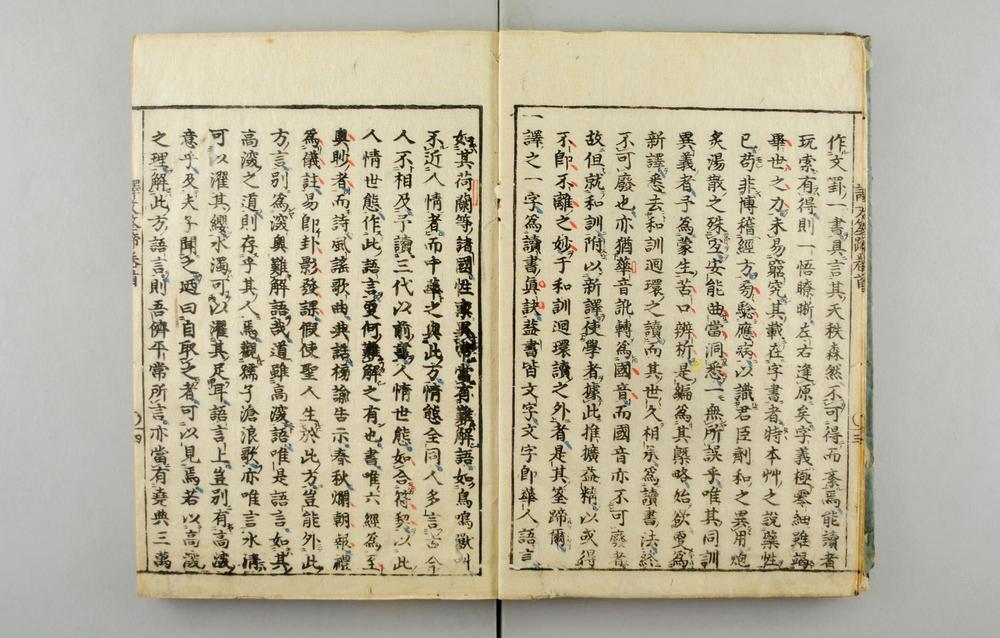 作文罫一書具言其天秩森然不可得而紊焉能讀者
玩索有得則一悟瞭晰左右逢原矣字義極零細雖竭
畢世之力未易窮究其載在字書者特本艸之說藥性
已苟非博稽經方旁驗應病以識君臣劑和之異用炮
炙湯散之殊及安能曲當洞悉一無所誤乎唯其同訓
異義者予為蒙生苦口辨析是編為其槩略始欲更為
新譯悉去和訓迴環之讀而其世久相承為讀書法終
不可廢也亦猶華音訛轉為國音而國音亦不可廢者
故但就和訓附以新譯使學者據此推擴益精以或得
不即不離之妙于和訓迴環讀之外者是其筌蹄爾
一譯之一字為讀書眞訣蓋書皆文字文字即華人語言
如其荷蘭等諸國性 異常當有難解語如鳥鳴獸叫
不近人情者而中華之與此方情態全同人多言古今
人不相及予讀三代以前書人情世態如合符契以此
人情世態作此語言更何難解之有也書唯六經為至
奧眇者而詩風謠歌曲典誥榜諭告示春秋爛朝報禮
為儀註易即卦影發課假使聖人生於此方豈能外此
方言別為深奧難解語哉道雖高深語唯是語言如其
高深之道則存乎其人焉觀孺子滄浪歌亦唯言水清
可以濯其纓水濁可以濯其足耳語言上豈別有高深
意乎及夫子聞之迺曰自取之者可以見焉若以高深
之理解此方語言則吾儕平常所言亦當有堯典三萬